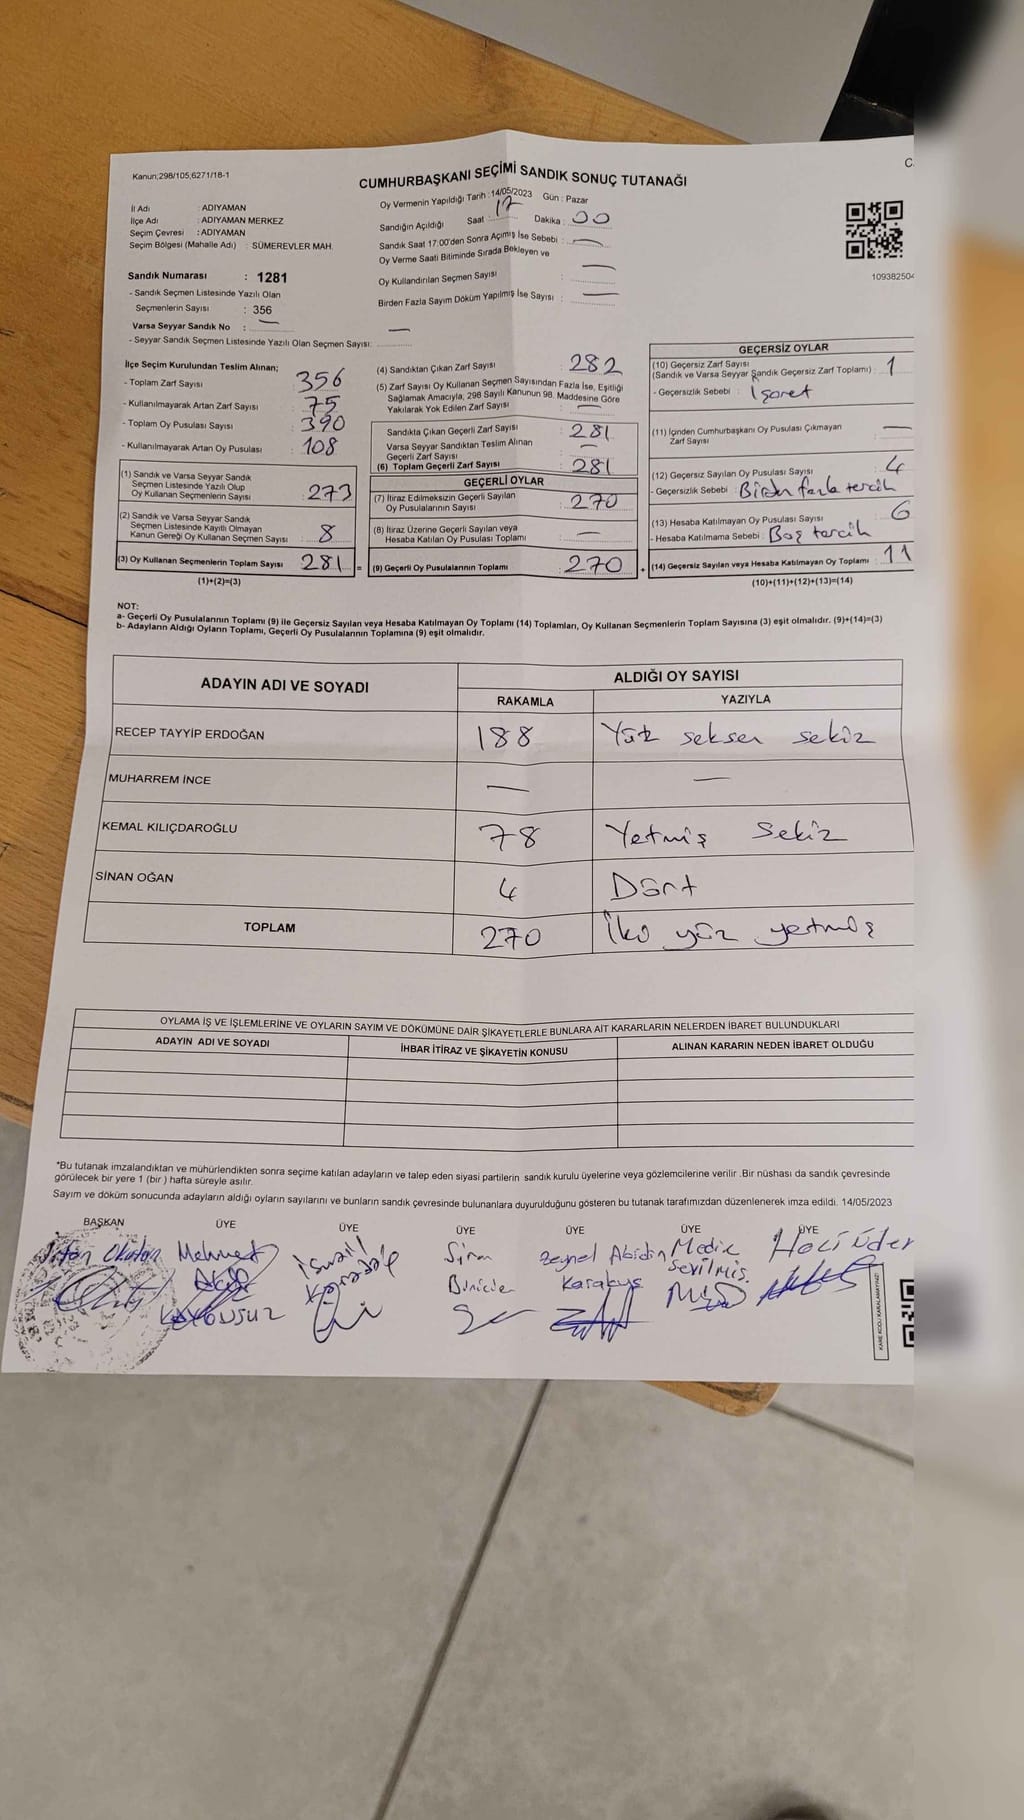 Kanun;298/105,6271/18-1
CUMHURBAŞKANI SEÇİMİ SANDIK SONUÇ TUTANAĞI
C.
İl Adı : ADIYAMAN
İlçe Adı : ADIYAMAN MERKEZ
Seçim Çevresi : ADIYAMAN
Seçim Bölgesi (Mahalle Adı) : SÜMEREVLER MAH.
Sandık Numarası : 1281
- Sandık Seçmen Listesinde Yazılı Olan
Seçmenlerin Sayısı : 356
Varsa Seyyar Sandık No : —
- Seyyar Sandık Seçmen Listesinde Yazılı Olan Seçmen Sayısı: —
Oy Vermenin Yapıldığı Tarih : 14/05/2023 Gün : Pazar
Sandığın Açıldığı Saat : 17 Dakika : 00
Sandık Saat 17:00'den Sonra Açılmış İse Sebebi : —
Oy Verme Saati Bitiminde Sırada Bekleyen ve
Oy Kullandırılan Seçmen Sayısı : —
Birden Fazla Sayım Döküm Yapılmış İse Sayısı : —
109382504
İlçe Seçim Kurulundan Teslim Alınan;
- Toplam Zarf Sayısı 356
- Kullanılmayarak Artan Zarf Sayısı : 75
- Toplam Oy Pusulası Sayısı : 390
- Kullanılmayarak Artan Oy Pusulası : 108
(1) Sandık ve Varsa Seyyar Sandık
Seçmen Listesinde Yazılı Olup
Oy Kullanan Seçmenlerin Sayısı : 273
(2) Sandık ve Varsa Seyyar Sandık
Seçmen Listesinde Kayıtlı Olmayan
Kanun Gereği Oy Kullanan Seçmen Sayısı : 8
(3) Oy Kullanan Seçmenlerin Toplam Sayısı 281 =
(1)+(2)=(3)
(4) Sandıktan Çıkan Zarf Sayısı : 282
(5) Zarf Sayısı Oy Kullanan Seçmen Sayısından Fazla İse, Eşitliği
Sağlamak Amacıyla, 298 Sayılı Kanunun 98. Maddesine Göre
Yakılarak Yok Edilen Zarf Sayısı : —
Sandıkta Çıkan Geçerli Zarf Sayısı : 281
Varsa Seyyar Sandıktan Teslim Alınan
Geçerli Zarf Sayısı : —
(6) Toplam Geçerli Zarf Sayısı : 281
GEÇERLİ OYLAR
(7) İtiraz Edilmeksizin Geçerli Sayılan
Oy Pusulalarının Sayısı : 270
(8) İtiraz Üzerine Geçerli Sayılan veya
Hesaba Katılan Oy Pusulası Toplamı : —
(9) Geçerli Oy Pusulalarının Toplamı : 270 +
GEÇERSİZ OYLAR
(10) Geçersiz Zarf Sayısı
(Sandık ve Varsa Seyyar Sandık Geçersiz Zarf Toplamı) : 1
- Geçersizlik Sebebi : İşaret
(11) İçinden Cumhurbaşkanı Oy Pusulası Çıkmayan
Zarf Sayısı : —
(12) Geçersiz Sayılan Oy Pusulası Sayısı : 4
- Geçersizlik Sebebi : Birden fazla tercih
(13) Hesaba Katılmayan Oy Pusulası Sayısı : 6
- Hesaba Katılmama Sebebi : Boş tercih
(14) Geçersiz Sayılan veya Hesaba Katılmayan Oy Toplamı : 11
(10)+(11)+(12)+(13)=(14)
NOT:
a- Geçerli Oy Pusulalarının Toplamı (9) ile Geçersiz Sayılan veya Hesaba Katılmayan Oy Toplamı (14) Toplamları, Oy Kullanan Seçmenlerin Toplam Sayısına (3) eşit olmalıdır. (9)+(14)=(3)
b- Adayların Aldığı Oyların Toplamı, Geçerli Oy Pusulalarının Toplamına (9) eşit olmalıdır.
ADAYIN ADI VE SOYADI ALDIĞI OY SAYISI
RAKAMLA YAZIYLA
RECEP TAYYİP ERDOĞAN 188 Yüz seksen sekiz
MUHARREM İNCE — —
KEMAL KILIÇDAROĞLU 78 Yetmiş Sekiz
SİNAN OĞAN 4 Dört
TOPLAM 270 İki yüz yetmiş
OYLAMA İŞ VE İŞLEMLERİNE VE OYLARIN SAYIM VE DÖKÜMÜNE DAİR ŞİKAYETLERLE BUNLARA AİT KARARLARIN NELERDEN İBARET BULUNDUKLARI
ADAYIN ADI VE SOYADI İHBAR İTİRAZ VE ŞİKAYETİN KONUSU ALINAN KARARIN NEDEN İBARET OLDUĞU
*Bu tutanak imzalandıktan ve mühürlendikten sonra seçime katılan adayların ve talep eden siyasi partilerin sandık kurulu üyelerine veya gözlemcilerine verilir .Bir nüshası da sandık çevresinde
görülecek bir yere 1 (bir ) hafta süreyle asılır.
Sayım ve döküm sonucunda adayların aldığı oyların sayılarını ve bunların sandık çevresinde bulunanlara duyurulduğunu gösteren bu tutanak tarafımızdan düzenlenerek imza edildi. 14/05/2023
BAŞKAN ÜYE ÜYE ÜYE ÜYE ÜYE ÜYE
Okutan Mehmet İsmail Zeynel Abidin Medine
Akif Binici Karakuş Sevilmiş
KAYGUSUZ
KARE KODU KARALAMAYINIZ!